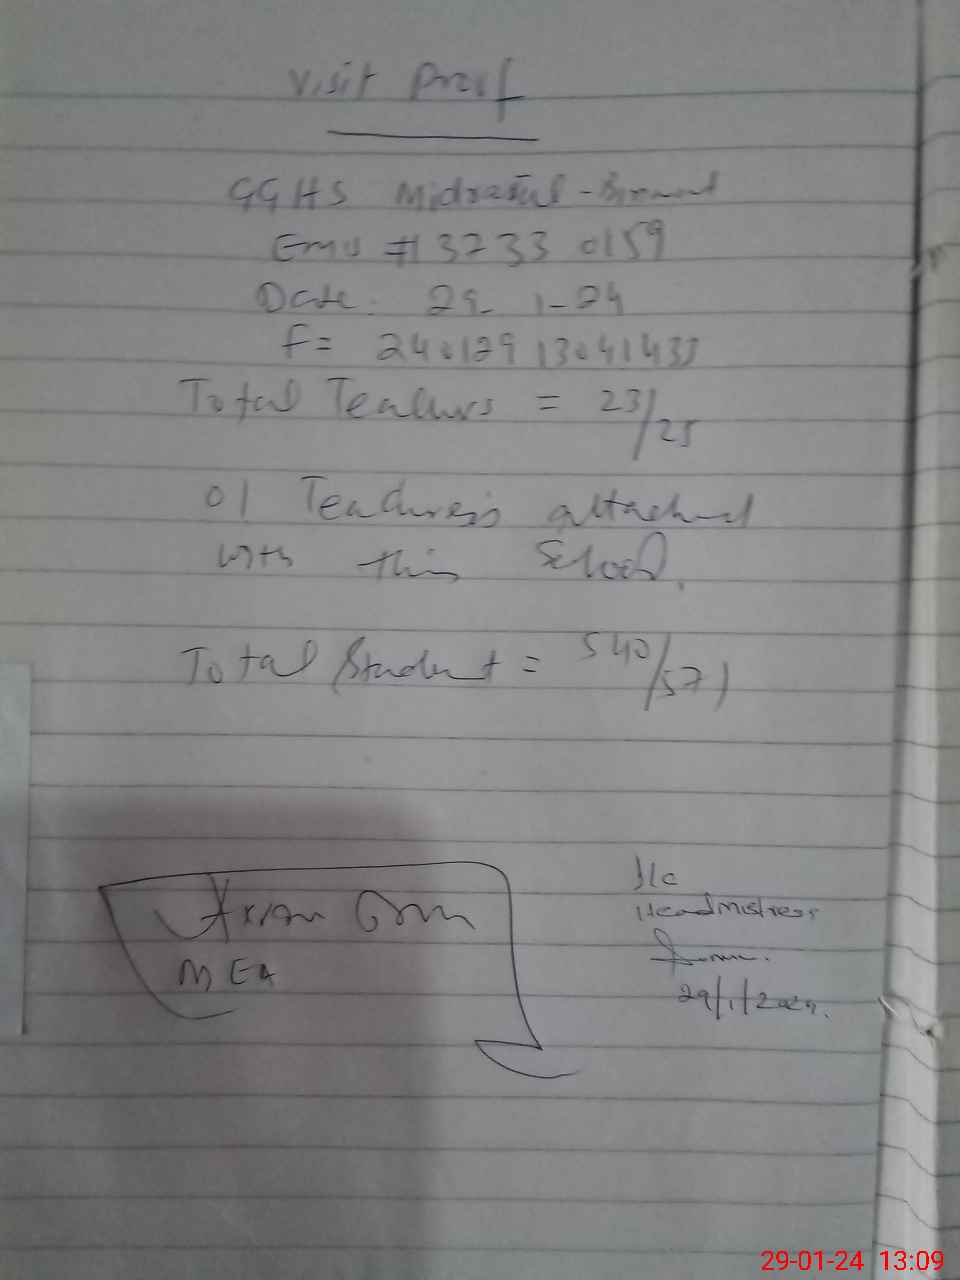 Visit Proof
GGHS Midrasatul-Banaat
Emis #13233 0159
Date: 29-1-24
F= 24012913041433
Total Teachers = 23/25
01 Teacher is attached
with this School.
Total Student = 540/571
I/C
Headmistress
29/1/2024.
MEA
29-01-24 13:09